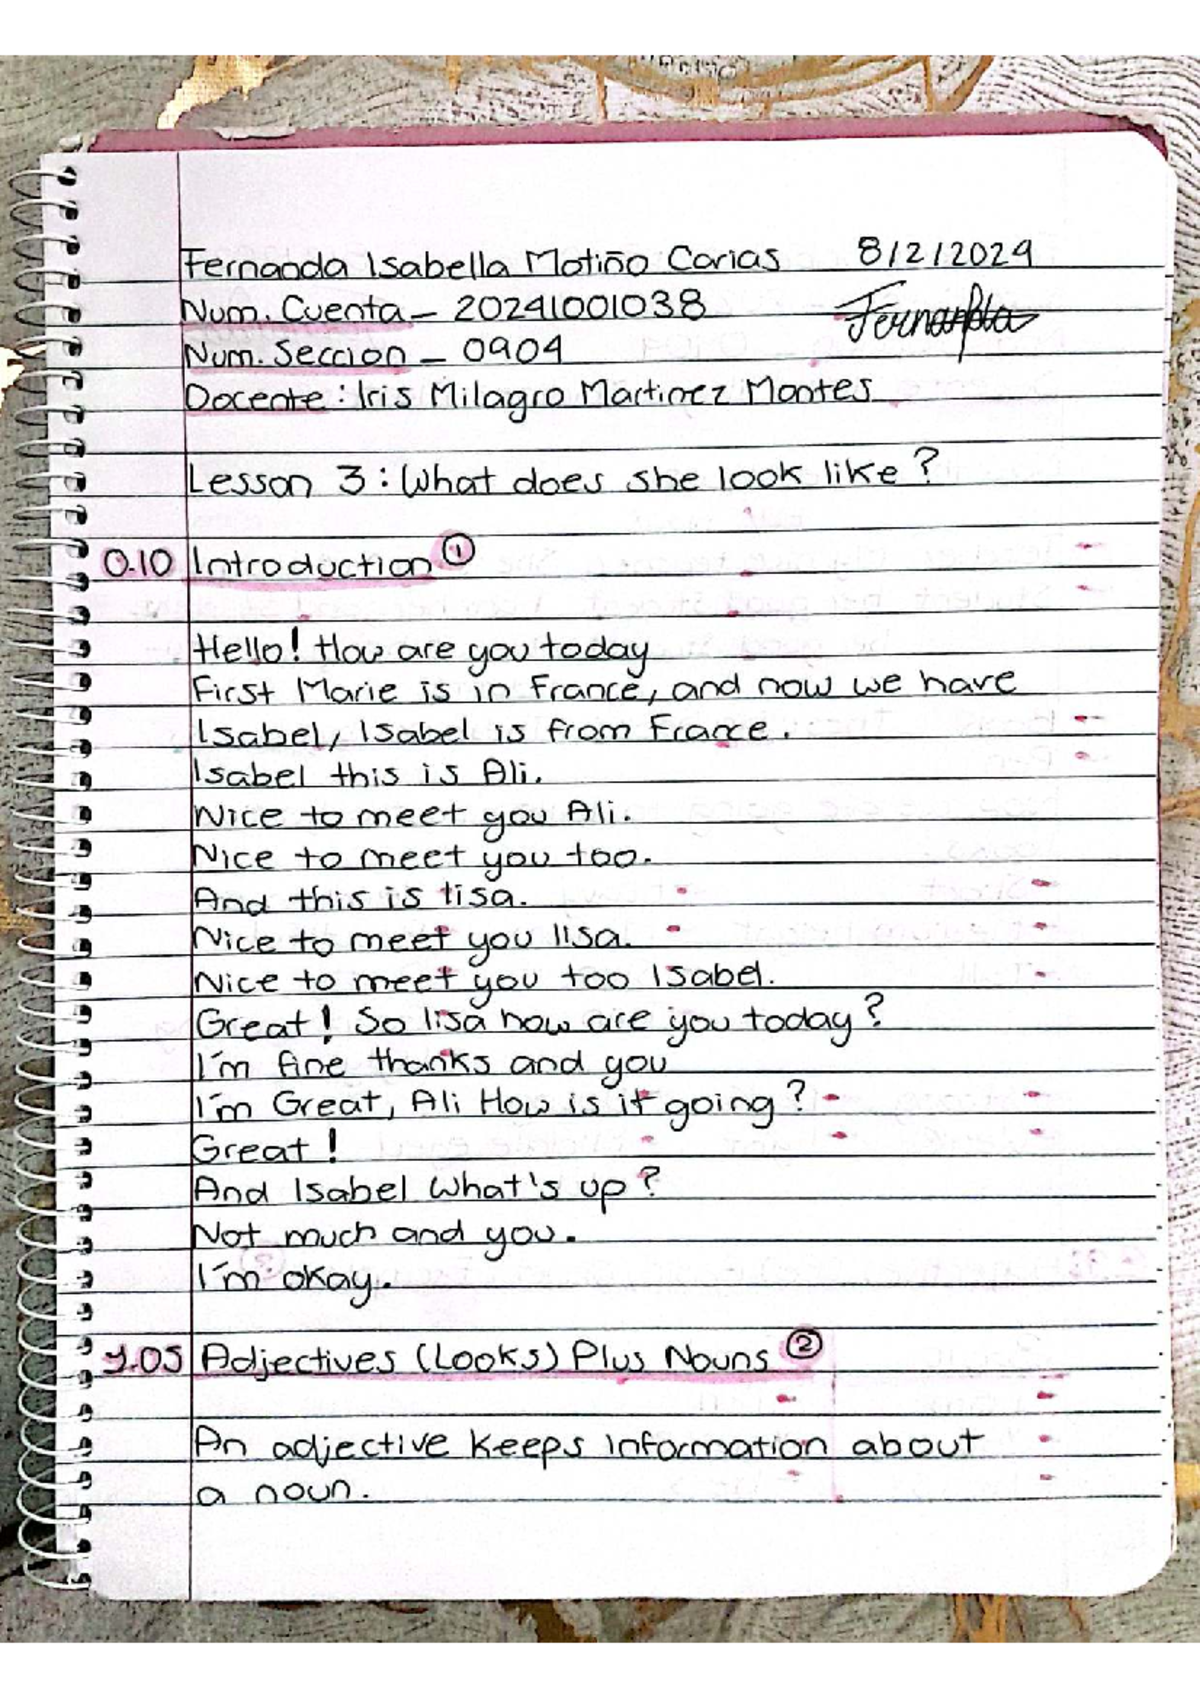 Fernanda Isabella Motiño Carias 8/2/2024
Num. Cuenta - 20241001038
Fernanda
Num. Seccion - 0904
Docente: Iris Milagro Martinez Montes
Lesson 3: What does she look like?
0.10 Introduction 1
Hello! How are you today
First Marie is in France, and now we have
Isabel, Isabel is from France.
Isabel this is Ali.
Nice to meet you Ali.
Nice to meet you too.
And this is lisa.
Nice to meet you lisa.
Nice to meet you too Isabel.
Great! So lisa how are you today?
I'm fine thanks and you
I'm Great, Ali How is it going?
Great!
And Isabel What's up?
Not much and you.
I'm okay.
1.05 Adjectives (Looks) Plus Nouns 2
An adjective keeps information about
a noun.